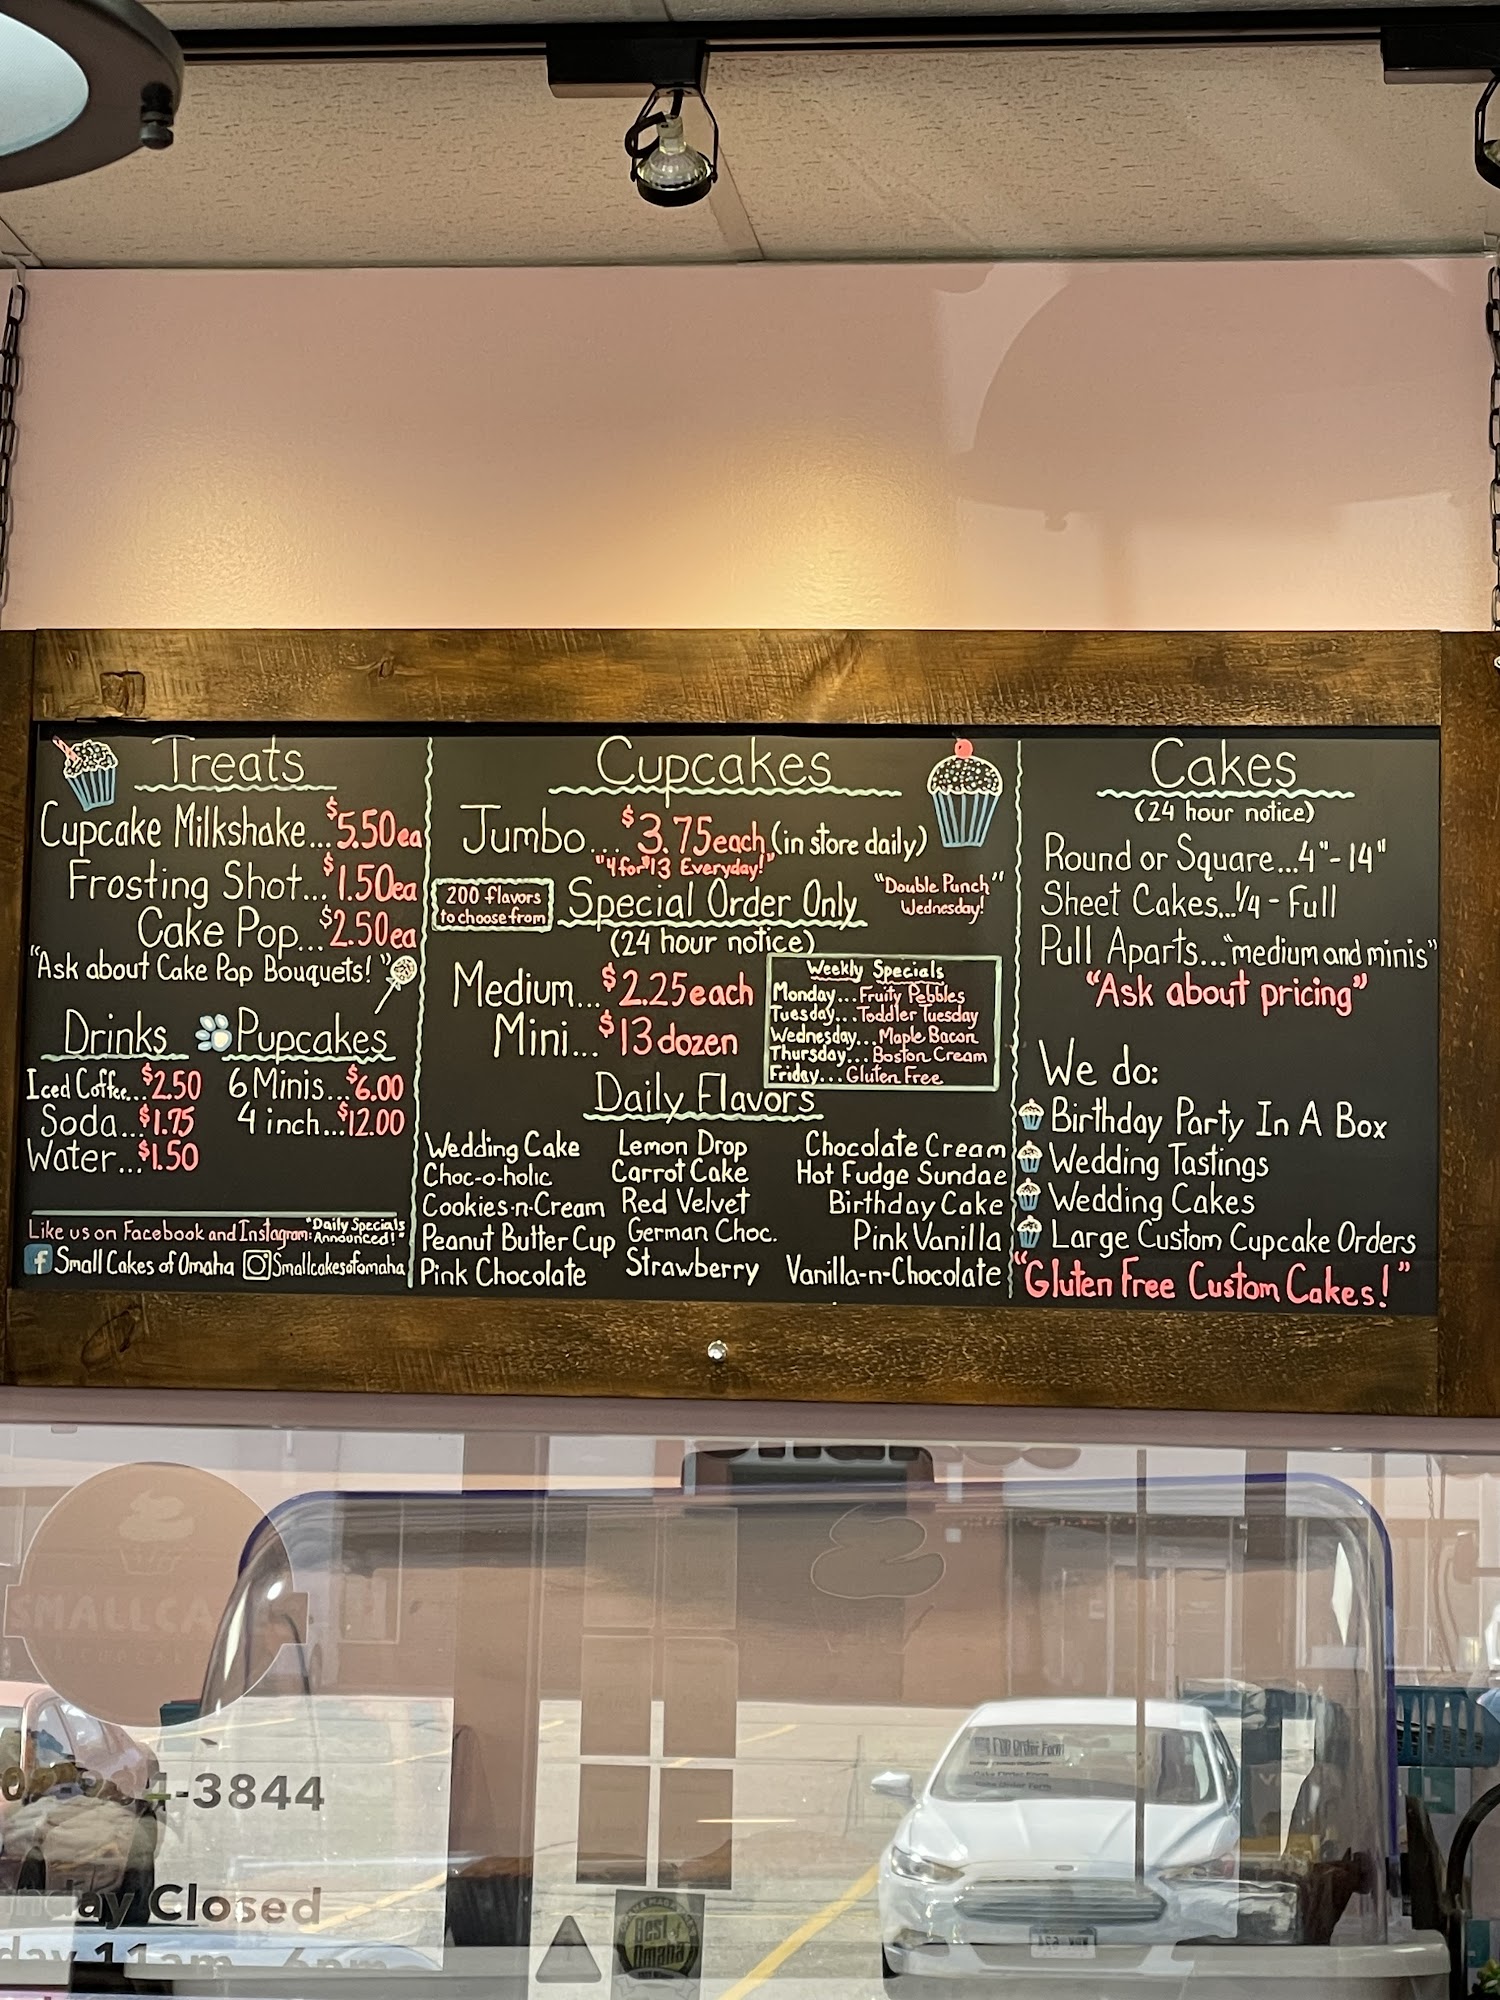 Treats
Cupcake Milkshake...$5.50ea
Frosting Shot...$1.50ea
Cake Pop...$2.50ea
"Ask about Cake Pop Bouquets!"
Drinks
Iced Coffee...$2.50
Soda...$1.75
Water...$1.50
Pupcakes
6 Minis...$6.00
4 inch...$12.00
Like us on Facebook and Instagram: "Daily Specials Announced!"
f Small Cakes of Omaha Smallcakesofomaha
Cupcakes
Jumbo... $3.75each (in store daily)
"4 for $13 Everyday!"
"Double Punch"
Wednesday!
200 flavors
to choose from
Special Order Only
(24 hour notice)
Medium...$2.25each
Mini...$13 dozen
Weekly Specials
Monday...Fruity Pebbles
Tuesday...Toddler Tuesday
Wednesday...Maple Bacon
Thursday...Boston Cream
Friday...Gluten Free
Daily Flavors
Wedding Cake
Choc-o-holic
Cookies-n-Cream
Peanut Butter Cup
Pink Chocolate
Lemon Drop
Carrot Cake
Red Velvet
German Choc.
Strawberry
Chocolate Cream
Hot Fudge Sundae
Birthday Cake
Pink Vanilla
Vanilla-n-Chocolate
Cakes
(24 hour notice)
Round or Square...4"-14"
Sheet Cakes...1/4 - Full
Pull Aparts..."medium and minis"
"Ask about pricing"
We do:
Birthday Party In A Box
Wedding Tastings
Wedding Cakes
Large Custom Cupcake Orders
"Gluten Free Custom Cakes!"
SMALLCA
-3844
Closed
11am - 6pm
Best
Omaha